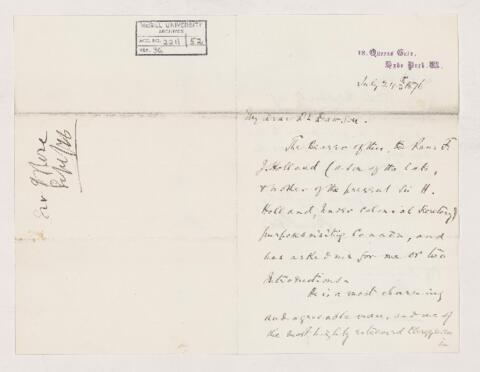 McGILL UNIVERSITY
ARCHIVES
ACC. NO. 2211 52
REF. 36
18, Queens Gate,
Hyde Park. W.
July 24th 1876
My dear Dr Dawson.
The Bearer of this, the Revd F
J. Holland (a son of the late,
& brother of the present Sir H.
Holland, Under Colonial Secretary)
purposes visiting Canada, and
has asked me for one or two
Introductions.
He is a most charming
and agreeable man, and one of
the most highly esteemed Clergymen
in